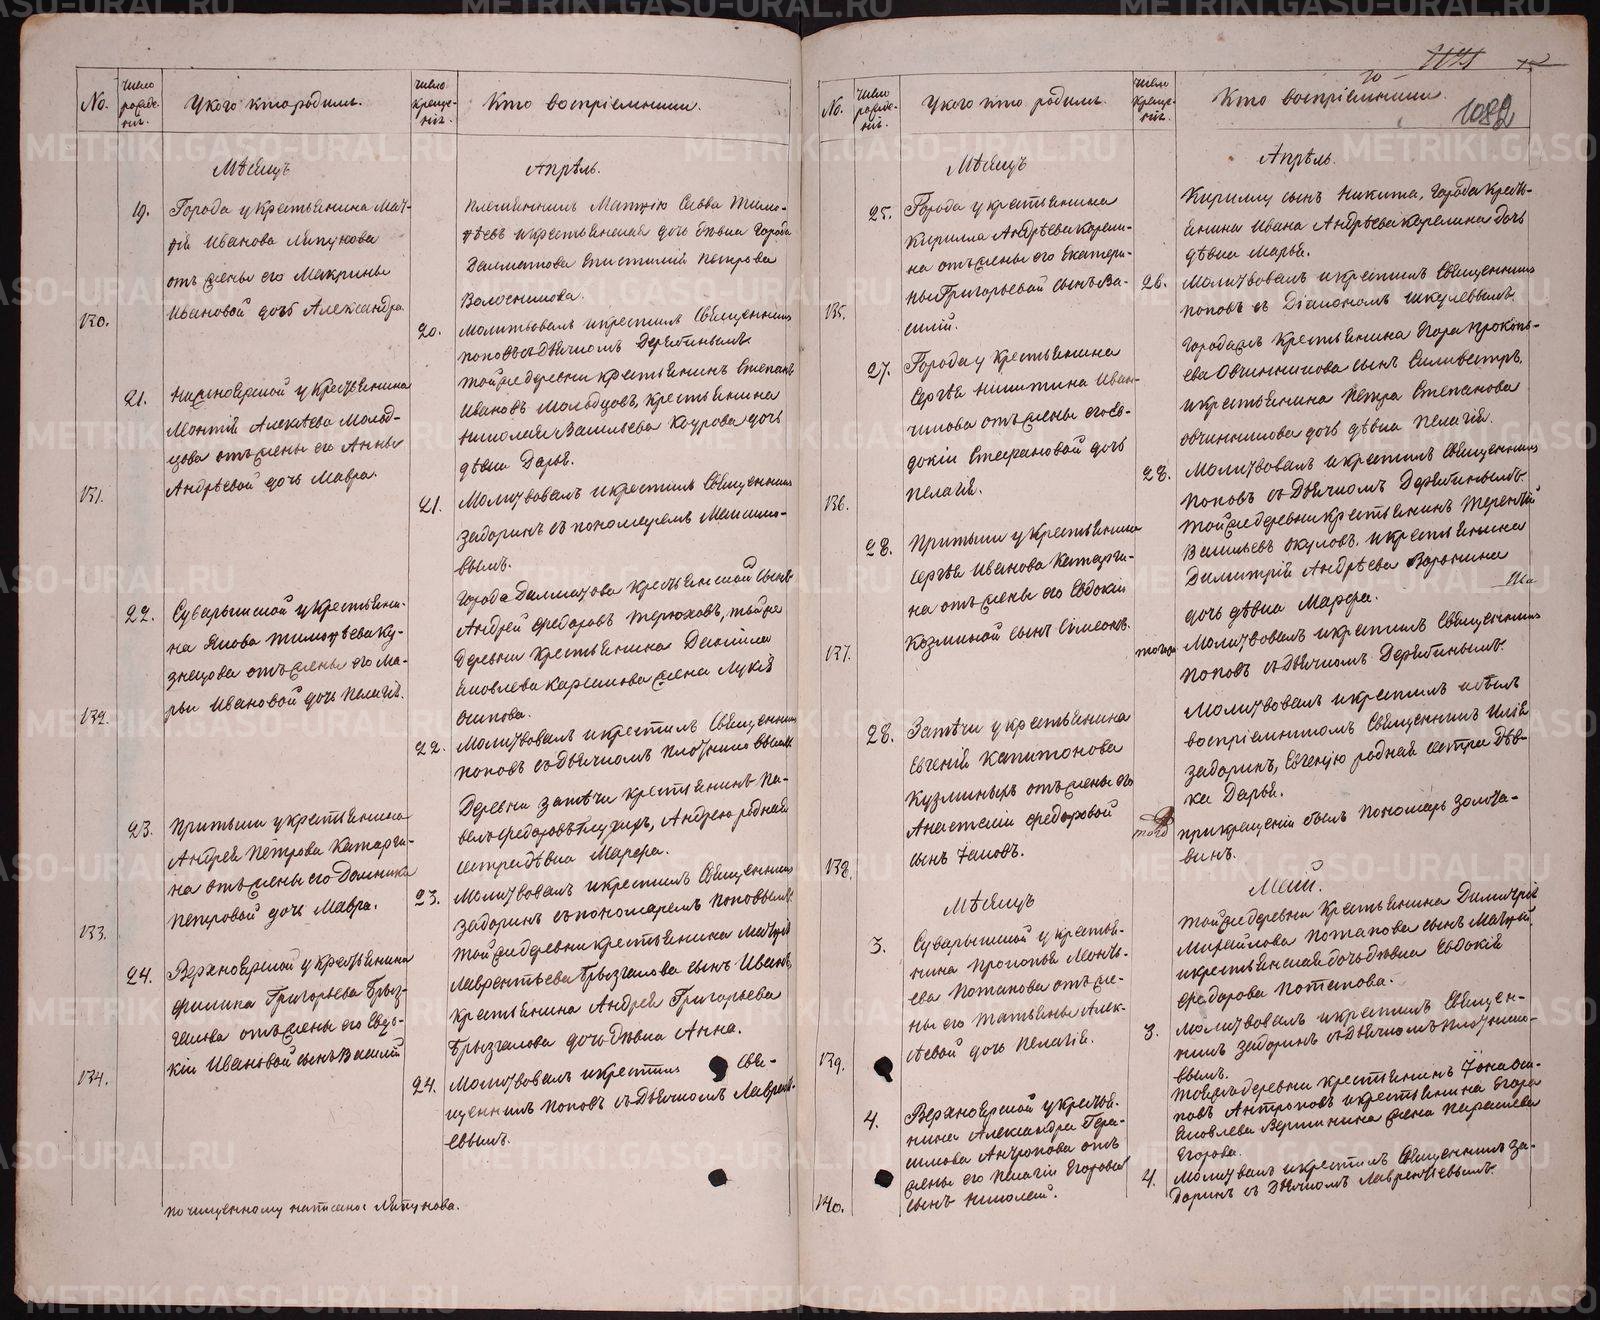 No.
Число рожде-нія.
У кого кто родил.
Число креще-нія.
Кто воспріемники.
Мѣсяцъ
Апрѣль.
130.
19.
Города у Крестьянина Мат-
ѳія Иванова Ляпунова
отъ жены его Макрины
Ивановой дочь Александра.
племянникъ Матѳію Савва Тимо-
ѳѣевъ и крестьянская дочь дѣвка Города
Далматова Епистимія Петрова
Волосникова.
20.
Молитвовалъ и крестилъ Священникъ
Поповъ съ Дьячкомъ Дерябинымъ.
131.
21.
Нижнеярской у Крестьянина
Леонтія Алексѣева Мольд-
цова отъ жены его Анны
Андрѣевой дочь Мавра.
Тойже деревни крестьянинъ Степанъ
Ивановъ Мольдцовъ, крестьянина
Николая Васильева Коурова дочь
дѣвка Дарья.
21.
Молитвовалъ и крестилъ Священникъ
Задоринъ съ пономаремъ
вымъ.
132.
22.
Суварышской у крестьяни-
на Якова Тимоѳѣева Ку-
знецова отъ жены его Ма-
рьи Ивановой дочь Пелагія.
Города Далматова Крестьянской сынъ
Андрей Федоровъ Терюховъ, тойже
деревни Крестьянина Даніила
Яковлева Карсакова жена Лукія
Осипова.
22.
Молитвовалъ и крестилъ Священникъ
Поповъ съ Дьячкомъ Плотниковымъ.
133.
23.
Притыки у крестьянина
Андрея Петрова Катарги-
на отъ жены его Домники
Петровой дочь Мавра.
Деревни Затечи крестьянинъ Па-
велъ Федоровъ Глухихъ, Андрею родная
сестра дѣвка Марѳа.
23.
Молитвовалъ и крестилъ Священникъ
Задоринъ съ пономаремъ Поповымъ.
134.
24.
Верхнеярской у крестьянина
Филипа Григорьева Брыз-
галова отъ жены его Евдо-
кіи Ивановой сынъ Василій
Тойже деревни крестьянина Матѳія
Лаврентьева Брызгалова сынъ Иванъ,
крестьянина Андрея Григорьева
Брызгалова дочь дѣвка Анна.
24.
Молитвовалъ и крестил Свя-
щенникъ Поповъ съ Дьячкомъ Лаврентъ-
евымъ.
По чищенному написано: Ляпунова.
1082
No.
Число рожде-нія.
У кого кто родил.
Число креще-нія.
Кто воспріемники.
Мѣсяцъ
Апрѣль.
135.
25.
Города у крестьянина
Кирилла Андрѣева Карели-
на отъ жены его Екатери-
ны Григорьевой сынъ Ва-
силій.
Кириллу сынъ Никита, города Кресть-
янина Ивана Андрѣева Карелина дочь
дѣвка Марья.
26.
Молитвовалъ и крестилъ Священникъ
Поповъ съ Діакономъ Шкулевымъ.
136.
27.
Города у Крестьянина
Сергѣя Никитина Иван-
чикова отъ жены его Ев-
докіи Стефановой дочь
Пелагія.
Крестьянина Егора Прокопь-
ева Овчинникова сынъ Силивестръ,
и крестьянина Петра Степанова
Овчинникова дочь дѣвка Пелагія.
28.
Молитвовалъ и крестилъ Священникъ
Поповъ съ Дьячкомъ Дерябинымъ.
137.
28.
Притыки у Крестьянина
Сергѣя Иванова Катарги-
на отъ жены его Евдокіи
Козминой сынъ Симеонъ.
Тойже деревни крестьянинъ Терентій
Васильевъ Окуловъ, и крестьянина
Димитрія Андрѣева Воронина
дочь дѣвка Марѳа.
тогож
Молитвовалъ и крестилъ Священникъ
Поповъ съ Дьячкомъ Дерябинымъ.
138.
28.
Затечи у крестьянина
Евгенія Капитонова
Кузминыхъ отъ жены его
Анастасіи Федоровой
сынъ Іаковъ.
Молитвовалъ и крестилъ и былъ
воспріемникомъ Священникъ Илія
Задоринъ, Евгенію родная сестра дѣв-
ка Дарья.
тогож
При крещеніи былъ Пономарь Золота-
винъ.
Мѣсяцъ
Май.
139.
3.
Суварышской у крестья-
нина Прокопья Леонть-
ева Потапова отъ же-
ны его Татьяны Алек-
сѣевой дочь Пелагія.
Тойже деревни Крестьянина Димитрія
Михайлова Потапова сынъ Матѳій,
и крестьянская дочь дѣвка Евдокія
Федорова Потапова.
3.
Молитвовалъ и крестилъ Священ-
никъ Задоринъ съ Дьячкомъ Плотнико-
вымъ.
140.
4.
Верхнеярской у крестья-
нина Александра Гера-
симова Антропова отъ
жены его Пелагіи Егоровой
сынъ Николай.
деревни крестьянинъ Іона
повъ Антроповъ и крестьянина Егора
Яковлева Вершинина жена Парасковья
Егорова.
4.
Молитвовалъ и крестилъ Священникъ За-
доринъ съ Дьячкомъ Лаврентьевымъ.
METRIKI.GASO-URAL.RU